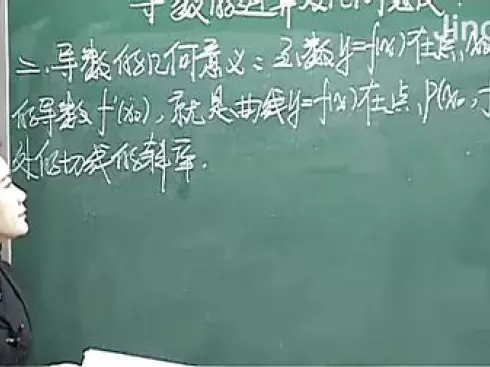 导数的运算及几何意义
Jing
二、导数的几何意义：函数y=f(x)在点x₀
的导数f'(x₀)，就是曲线y=f(x)在点P(x₀,
处的切线的斜率.